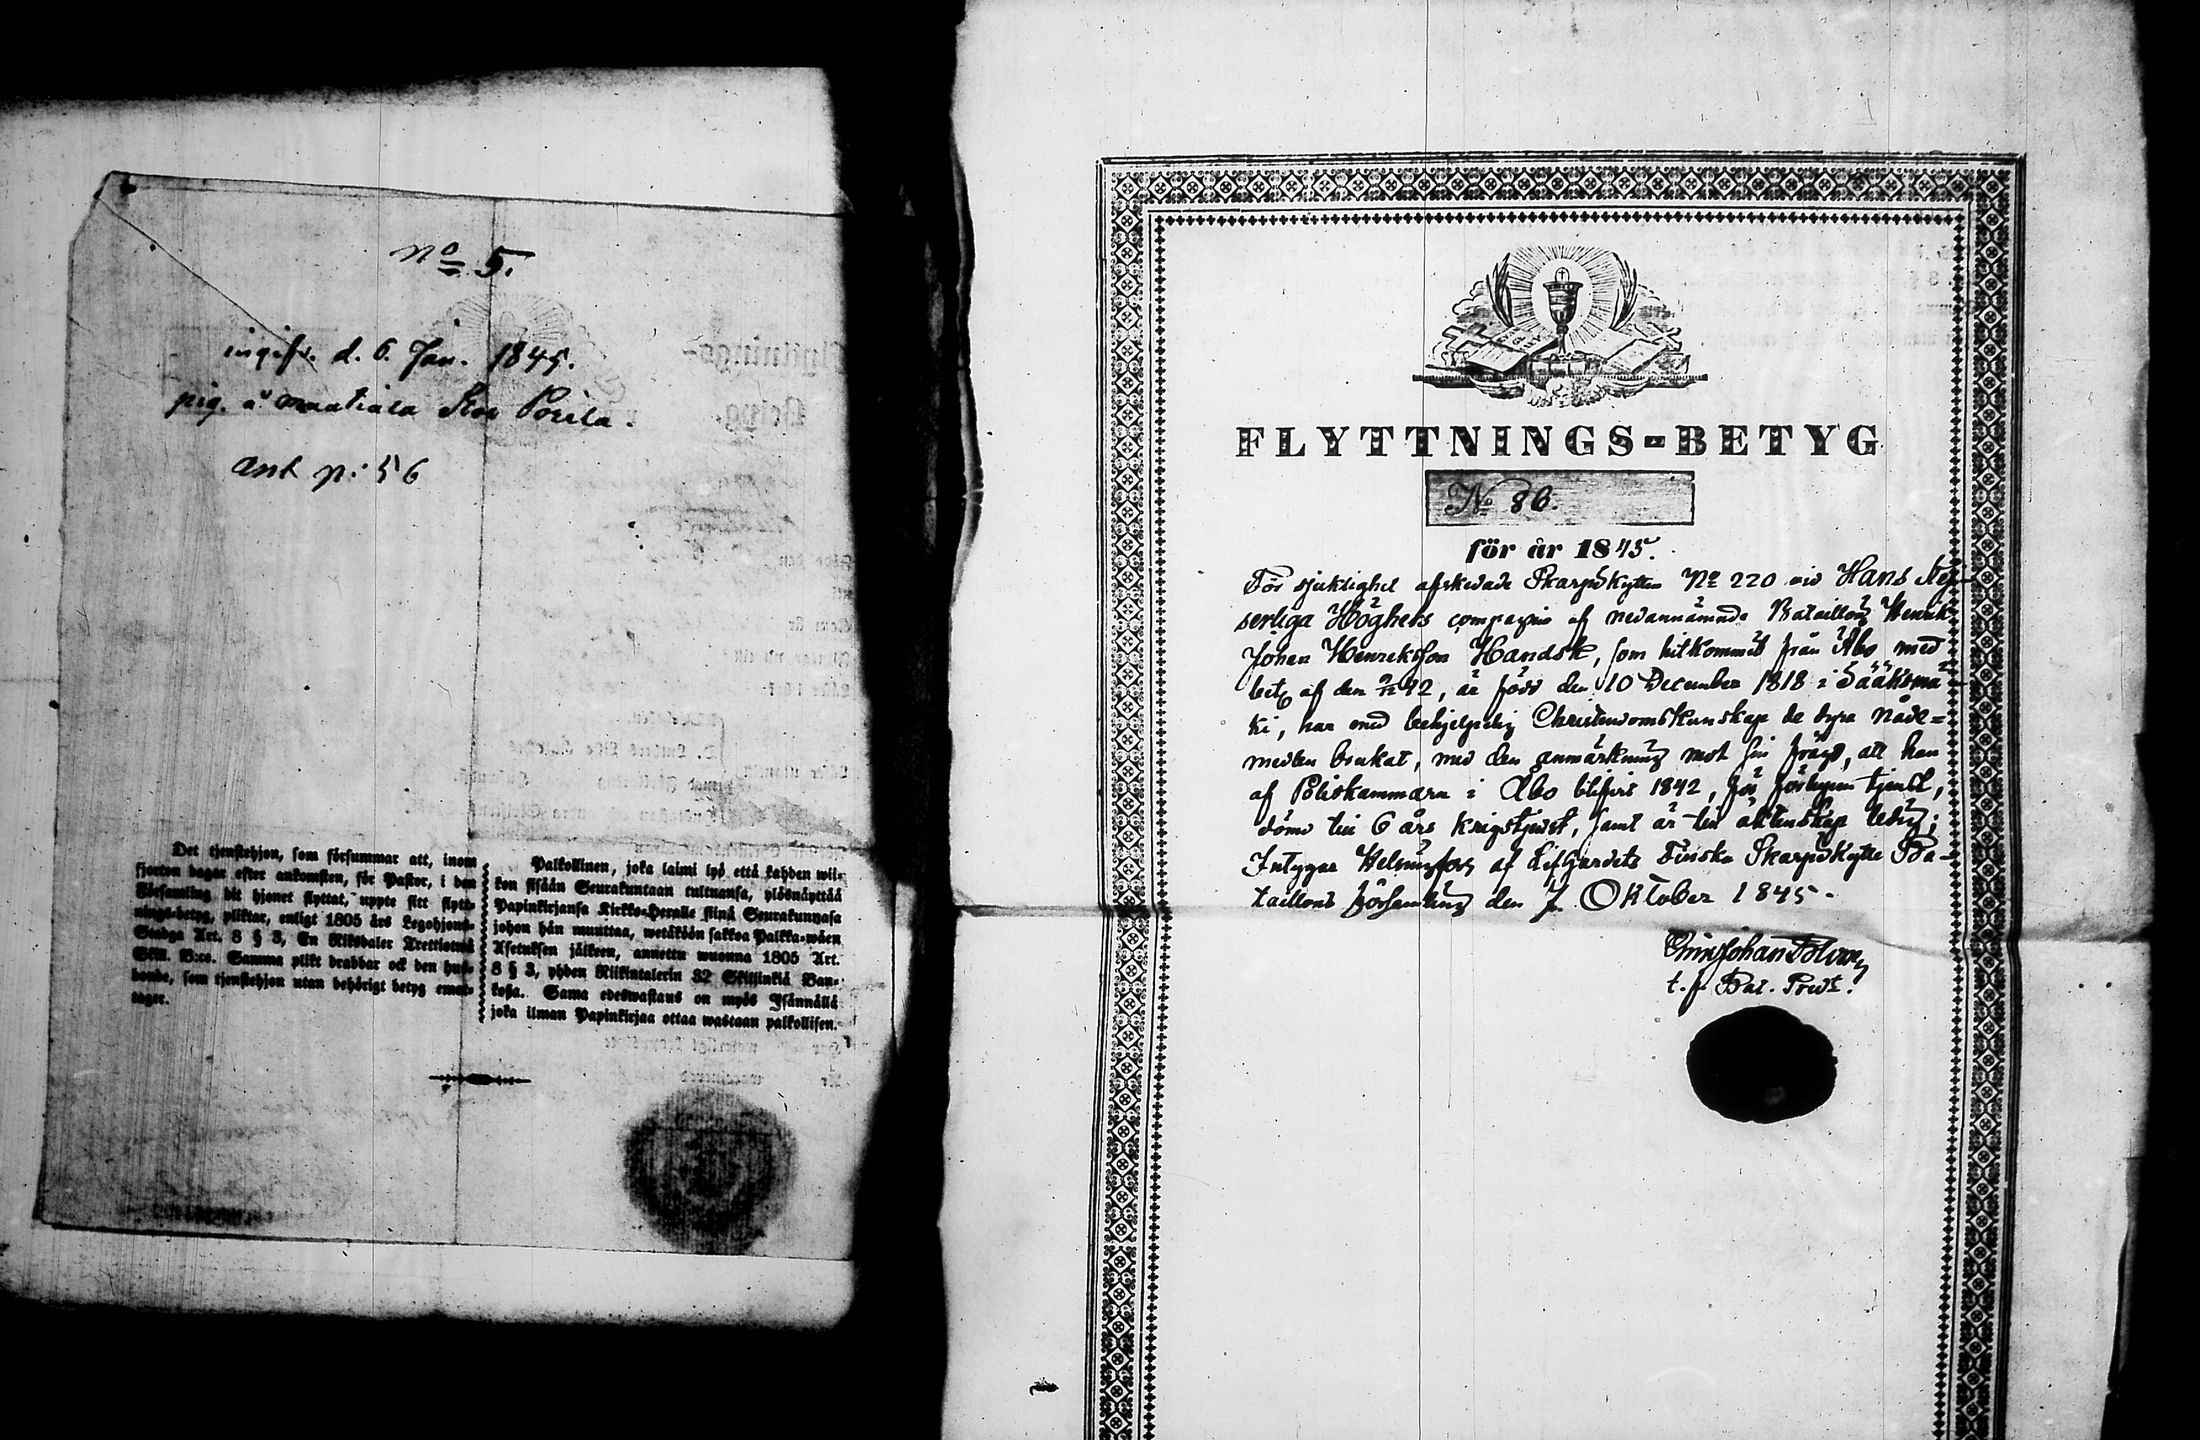 No 5.
ingifv. d. 6. Jan. 1845.
pig. å Maatiala Stor Porila.
ant p: 56
Det tjenstehjon, som försummar att, inom
fjorton dagar efter ankomsten, för Pastor, i den
Församling dit hjonet flyttat, uppte sitt flytt-
nings-betyg, pliktar, enligt 1805 års Legohjons-
Stadga Art. 8 § 3, En Riksdaler Trettiotvå
Skill. B:co. Samma plikt drabbar ock den hus-
bonde, som tjenstehjon utan behörigt betyg emot-
tager.
Palkollinen, joka laimi lyö että kahden wii-
kon sisään Seurakuntaan tultuansa, ylösnäyttää
Papinkirjansa Kirkko-Heralle siinä Seurakunnasa
johon hän muuttaa, wetäköön sakkoa Palkka-wäen
Asetuksen jälkeen, annettu wuonna 1805 Art.
8 § 3, yhden Riikintalerin 32 Skillinkiä Ban-
kosa. Sama edeswastaus on myös Isännällä
joka ilman Papinkirjaa ottaa wastaan palkollisen.
FLYTTNINGS-BETYG
No 86.
för år 1845.
För sjuklighet afskedade Skarpskytten No 220 vid Hans Kej-
serliga Höghets compagnie af nedannämnde Bataillon Henrik
Johan Henriksson Handsk, som hitkommit från Åbo med
bet. af den 42, är född den 10 December 1818 i Sääksmä-
ki, har med behjelplig Christendomskunskap de dyra nåde-
medlen brukat, med den anmärkning mot sin frägd, att han
af Poliskammarn i Åbo blifvit 1842, för förlupen tjenst,
dömd till 6 års Krigstjenst, samt är till äktenskap ledig;
Intygar Helsingfors af Lifgardets Finska Skarpskytte Ba-
taillons församling den 7 Oktober 1845.
Johan
t.f. Bat. Pred.